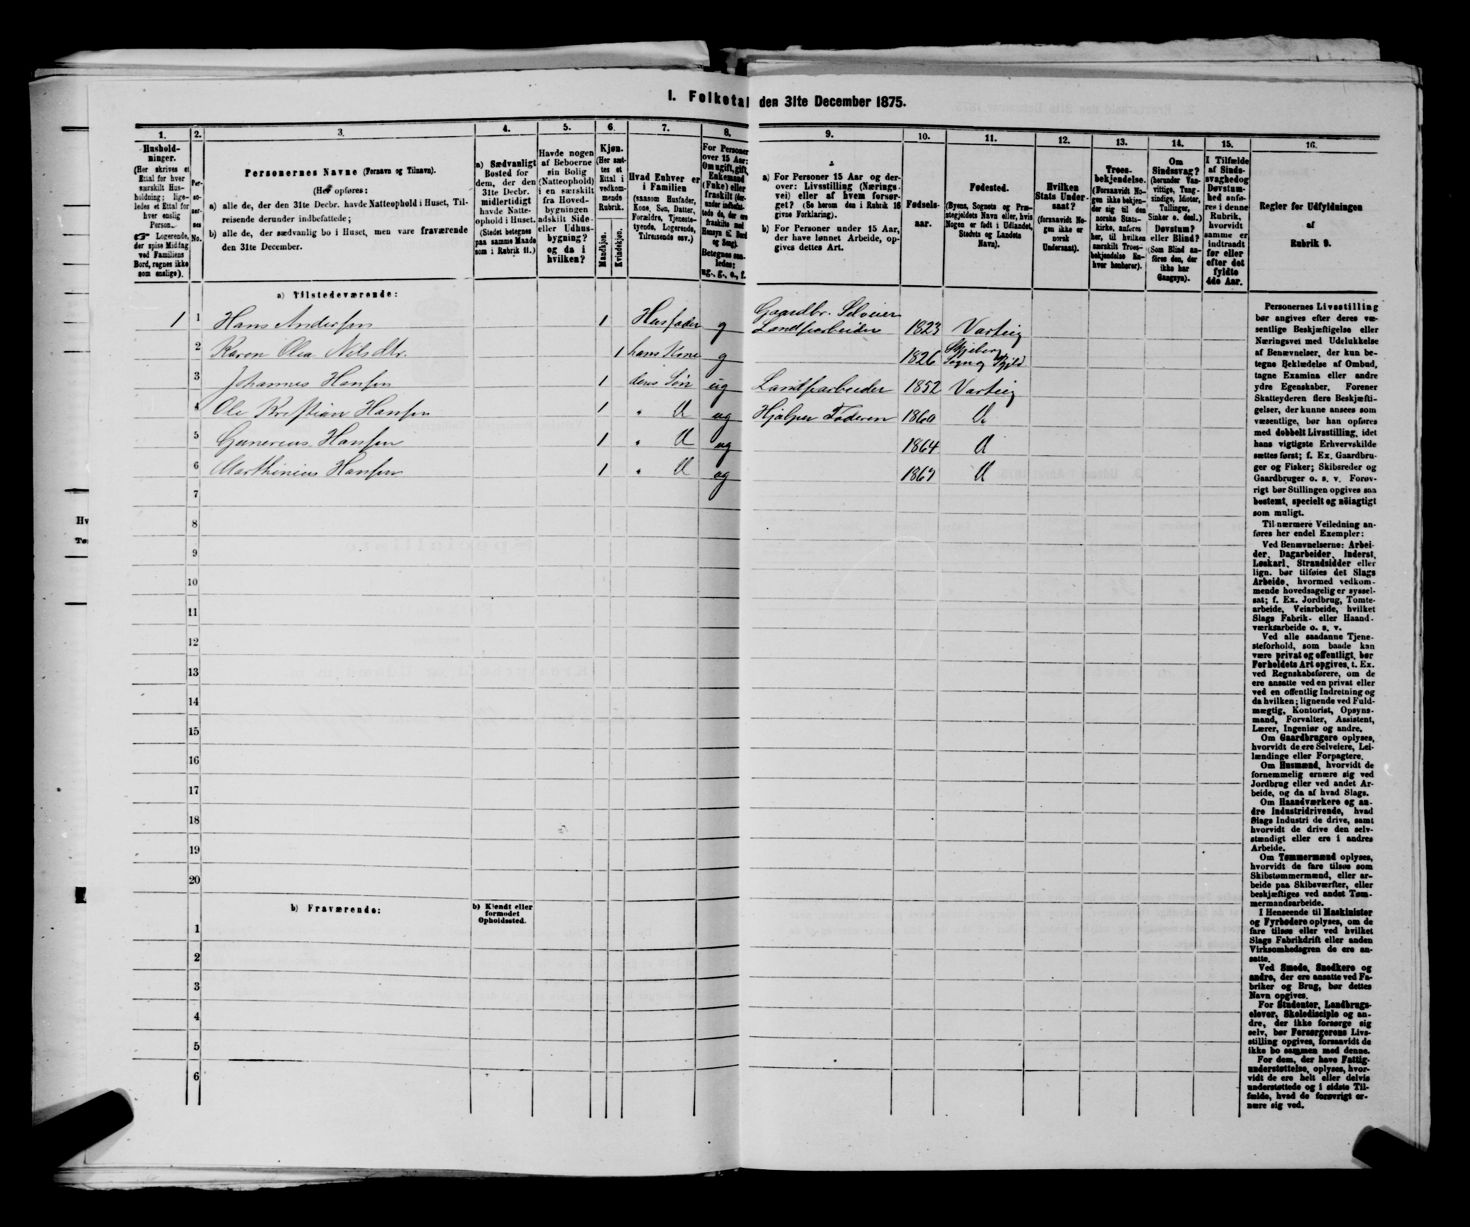 I. Folketal den 31te December 1875.
1. 2. 3. 4. 5. 6. 7. 8. 9. 10. 11. 12. 13. 14. 15. 16.
Hushold-
ninger.
(Her skrives et
Ettal for hver
særskilt Hus-
holdning; lige-
ledes et Ettal for
hver enslig
Person.
☞ Logerende,
der spise Middag
ved Familiens
Bord, regnes ikke
som enslige).
Per-
so-
ner-
nes
No.
Personernes Navne (Fornavn og Tilnavn).
(Her opføres:
a) alle de, der den 31te Decbr. havde Natteophold i Huset, Til-
reisende derunder indbefattede;
b) alle de, der sædvanlig bo i Huset, men vare fraværende
den 31te December.
a) Sædvanligt
Bosted for
dem, der den
31te Decbr.
midlertidigt
havde Natte-
ophold i Huset.
(Stedet betegnes
paa samme Maade
som i Rubrik 11.)
Havde nogen
af Beboerne
sin Bolig
(Natteophold)
i en særskilt
fra Hoved-
bygningen
adskilt Side-
eller Udhus-
bygning?
og da i
hvilken?
Kjøn.
(Her sæt-
tes et
Ettal i
vedkom-
mende
Rubrik.
Mandkjøn.
Kvindekjøn.
Hvad Enhver er
i Familien
(saasom Husfader,
Kone, Søn, Datter,
Forældre, Tjeneste-
tyende, Logerende,
Tilreisende osv.)
For Personer
over 15 Aar:
Om ugift, gift,
Enkemand
(Enke) eller
fraskilt
Betegnes saa-
ledes:
ug., g., e., f.
a) For Personer 15 Aar og der-
over: Livsstilling (Nærings-
vei) eller af hvem forsør-
get? (Se herom den i Rubrik 16
givne Forklaring).
b) For Personer under 15 Aar,
der have lønnet Arbeide, op-
gives dettes Art.
Fødsels-
aar.
Fødested.
(Byens, Sognets og Præ-
stegjeldets Navn eller, hvis
Nogen er født i Udlandet,
Stedets og Landets
Navn).
Hvilken
Stats Under-
saat?
(forsaavidt No-
gen ikke er
norsk
Undersaat).
Troes-
bekjendelse.
(Forsaavidt No-
gen ikke bekjen-
der sig til den
norske Stats-
kirke, anføres
her, til hvilken
særskilt Troes-
bekjendelse En-
hver henhører).
Om
Sindssvag?
(herunder Van-
vittige, Tung-
sindige, Idioter,
Tullinger,
Sinker o. desl.)
Døvstum?
eller Blind?
(Som Blind an-
føres den, der
ikke har
Gangsyn).
I Tilfælde
af Sinds-
svaghed og
Døvstum-
hed anfø-
res i denne
Rubrik,
hvorvidt
samme er
indtraadt
før eller
efter det
fyldte
4de Aar.
Regler for Udfyldningen
af
Rubrik 9.
a) Tilstedeværende:
1 1 Hans Andersen 1 Husfader g Gaardbr. Selveier Landsarbeider 1823 Varteig
2 Karen Olea Nilsdtr. 1 hans Kone g 1826 Skjeberg Sogn og Gjeld
3 Johannes Hansen 1 deres Søn ug Landsarbeider 1852 Varteig
4 Ole Kristian Hansen 1 " d ug Hjælper Faderen 1860 d
5 Gunerius Hansen 1 " d ug 1864 d
6 Marthinius Hansen 1 " d ug 1867 d
7
8
9
10
11
12
13
14
15
16
17
18
19
20
b) Fraværende:
b) Kjendt eller
formodet
Opholdssted.
1
2
3
4
5
6
Personernes Livsstilling
bør angives efter deres væ-
sentlige Beskjæftigelse eller
Næringsvei med Udelukkelse
af Benævnelser, der kun be-
tegne Beklædelse af Ombud,
tagne Examina eller andre
ydre Egenskaber. Forener
Skatteyderen flere Beskjæfti-
gelser, der kunne ansees som
væsentlige, bør han opføres
med dobbelt Livsstilling, idet
hans vigtigste Erhvervskilde
sættes først; f. Ex. Gaardbru-
ger og Fisker; Skibsreder og
Gaardbruger o. s. v. Forøv-
rigt bør Stillingen opgives saa
bestemt, specielt og nøiagtigt
som muligt.
Til nærmere Veiledning an-
føres her endel Exempler:
Ved Benævnelserne: Arbei-
der, Dagarbeider, Inderst,
Løskarl, Strandsidder eller
lign. bør tilføies det Slags
Arbeide, hvormed vedkom-
mende hovedsagelig er syssel-
sat; f. Ex. Jordbrug, Tomte-
arbeide, Veiarbeide, hvilket
Slags Fabrik- eller Haand-
værksarbeide o. s. v.
Ved alle saadanne Tjene-
steforhold, som baade kan
være privat og offentligt, bør
Forholdets Art opgives, t. Ex.
ved Regnskabsførere, om de
ere ansatte ved en privat eller
ved en offentlig Indretning og
da hvilken; lignende ved Fuld-
mægtig, Kontorist, Opsyns-
mand, Forvalter, Assistent,
Lærer, Ingeniør og andre.
Om Gaardbrugere oplyses,
hvorvidt de ere Selveiere, Lei-
lændinge eller Forpagtere.
Om Husmænd, hvorvidt de
fornemmelig ernære sig ved
Jordbrug eller ved andet Ar-
beide, og da af hvad Slags.
Om Haandværkere og an-
dre Industridrivende, hvad
Slags Industri de drive, samt
hvorvidt de drive den selv-
stændigt eller ere i andres
Arbeide.
Om Tømmermænd oplyses,
hvorvidt de fare tilsøs som
Skibstømmermænd, eller ar-
beide paa Skibsværfter, eller
beskjæftiges ved andet Tøm-
mermandsarbeide.
I Henseende til Maskinister
og Fyrbødere oplyses, om de
fare tilsøs eller ved hvilket
Slags Fabrikdrift eller anden
Virksomhedsgren de ere an-
satte.
Ved Smede, Snedkere og
andre, der ere ansatte ved Fa-
briker og Brug, bør dettes
Navn opgives.
For Studenter, Landbrugs-
elever, Skoledisciple og an-
dre, der ikke forsørge sig
selv, bør Forsørgerens Livs-
stilling opgives, forsaavidt de
ikke bo sammen med denne.
For dem, der have Fattig-
understøttelse, oplyses, hvor-
vidt de ere helt eller delvis
understøttede og i sidste Til-
fælde, hvad de forøvrigt er-
nære sig ved.